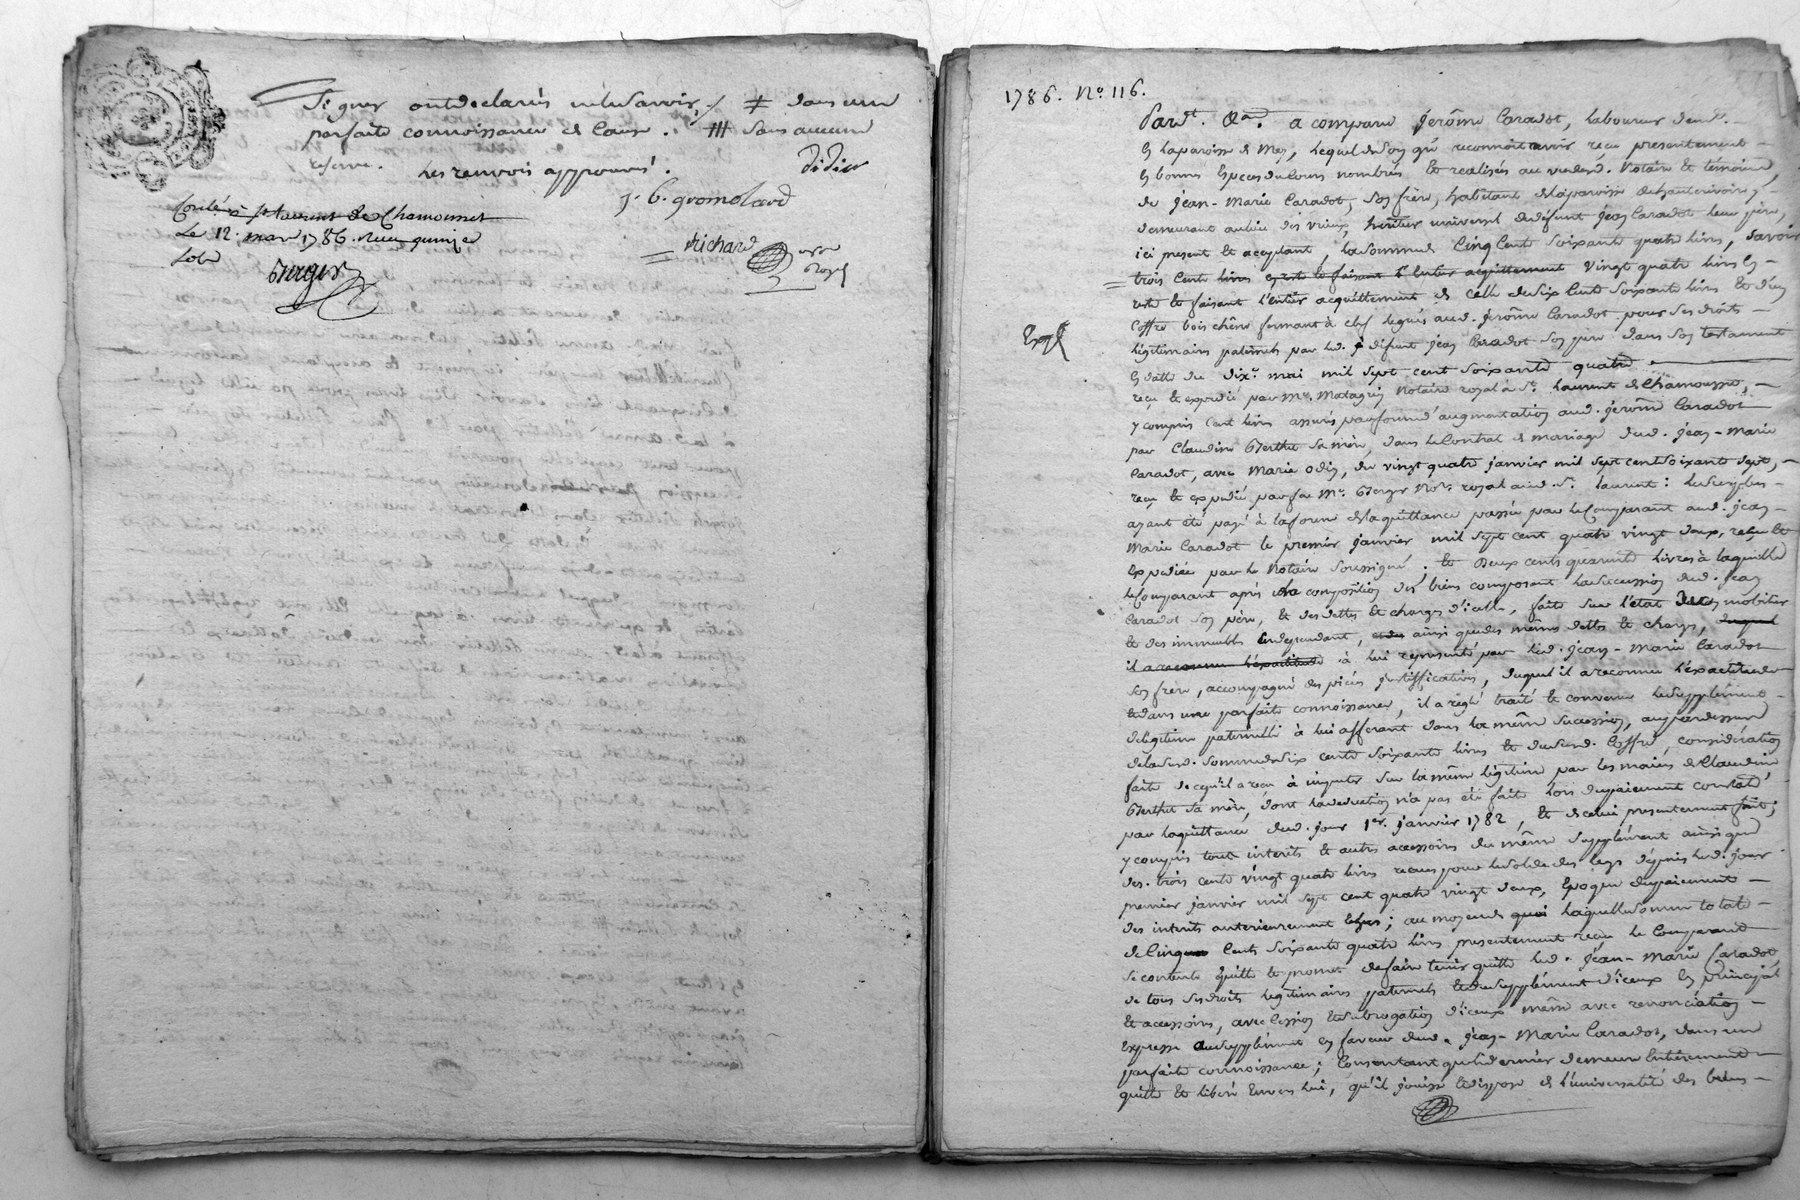 signer ont declarés ne le savoir ./. ‡ dans une
parfaite connoissance de Cause . ||| sans aucune
réserve. les renvois approuvés .
Didier
J. b. gromolard
Richard
Contrôlé à St Laurent de Chamousset
Le 12. mars 1786. Reçu quinze
sols
Berger
1786. No. 116.
Pardt. &a. a comparu Jerôme Caradot, Laboureur demt.
En la parroisse de Meys, lequel de son gré reconnoit avoir reçu presentement
En bonnes Especes de Cours nombrées et realisées au vu desd. Notaire et témoins,
de jean-Marie Caradot, son frère, habitant de la paroisse de hauterivoire,
demeurant au lieu des vieux, héritier universel de défunt jean Caradot leur père,
ici présent et acceptant, la somme de Cinq Cents soixante quatre livres, savoir
trois Cents livres Vingt quatre livres En
reste et faisant l'Entier acquittement de Celle de six Cents soixante livres et d'un
Coffre bois chêne fermant à clef legués aud. jerôme Caradot pour ses droits
légitimaires paternels par led. défunt jean Caradot son père dans son testament
En datte du dixe. mai mil sept cent soixante quatre
reçu et expedié par Me. Matagrin Notaire royal à St. Laurent de Chamousset,
y compris Cent livres assurés par forme d'augmentation aud. jerôme Caradot
par Claudine Berthet sa mère, dans le Contrat de mariage dud. jean-Marie
Caradot, avec Marie Odin, du vingt quatre janvier mil sept cent soixante sept,
reçu et expedié par feu Me. Berger Nore. royal aud. St. Laurent : le surplus
ayant été payé à la forme de la quittance passée par le Comparant aud. jean
Marie Caradot le premier janvier mil sept cent quatre vingt deux, reçue et
Expediée par le Notaire soussigné. Et Deux cents quarante livres à laquelle
le Comparant après la composition des biens composant la succession dud. jean
Caradot son père, et des dettes et charges d'icelle, faite sur l'état du mobilier
et des immeubles En dependant, ainsi que des mêmes dettes et charges, duquel
il a reconnu l'exactitude à lui representé par led. jean-Marie Caradot
son frère, accompagné des pièces justifficatives, duquel il a reconnu l'exactitude
et dans une parfaite connoissance, il a réglé traité et convenu le supplément
de légitime paternelle à lui afferant dans la même succession, au par dessus
de la susd. somme de six cents soixante livres et du susd. Coffre, considération
faite de ce qu'il a reçu à imputer sur la même légitime par les mains de Claudine
Berthet sa mère, dont la deduction n'a pas été faite lors du paiement constaté
par la quittance dud. jour 1er. janvier 1782, et de celui presentement fait;
y compris tous interets et autres accessoires du même supplément ainsi que
des trois cents vingt quatre livres reçues pour le solde des legs depuis led. jour
premier janvier mil sept cent quatre vingt deux, Epoque du paiement
des interêts anterieurement Echus; au moyen de quoi laquelle somme totale
de Cinq Cents soixante quatre livres presentement reçue le Comparant
se contente quitte et promet de faire tenir quitte led. jean-Marie Caradot,
de tous ses droits légitimaires paternels et de supplément d'iceux En principal
et accessoires, avec Cession et subrogation d'iceux même avec renonciation
Expresse au supplément en faveur dud. jean-Marie Caradot, dans une
parfaite connoissance; Consentant que ce dernier demeure Entièrement
quitte et liberé Envers lui, qu'il jouisse et dispose de l'universalité des biens